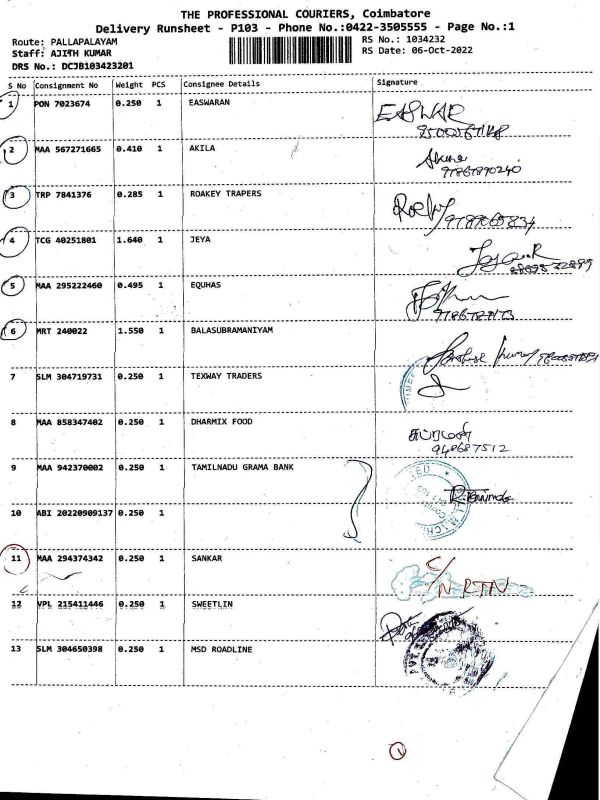 THE PROFESSIONAL COURIERS, Coimbatore
Delivery Runsheet - P103 - Phone No.:0422-3505555 - Page No.:1
Route: PALLAPALAYAM
RS No.: 1034232
Staff: AJITH KUMAR
RS Date: 06-Oct-2022
DRS No.: DCJB103423201
S No Consignment No Weight PCS Consignee Details Signature
1 PON 7023674 0.250 1 EASWARAN
2 MAA 567271665 0.410 1 AKILA
3 TRP 7841376 0.285 1 ROAKEY TRAPERS
4 TCG 40251801 1.640 1 JEYA
5 MAA 295222460 0.495 1 EQUHAS
6 MRT 240022 1.550 1 BALASUBRAMANIYAM
7 SLM 304719731 0.250 1 TEXWAY TRADERS
8 MAA 858347402 0.250 1 DHARMIX FOOD
9 MAA 942370002 0.250 1 TAMILNADU GRAMA BANK
10 ABI 20220909137 0.250 1
11 MAA 294374342 0.250 1 SANKAR
C/N RTN
12 VPL 215411446 0.250 1 SWEETLIN
13 SLM 304650398 0.250 1 MSD ROADLINE
1